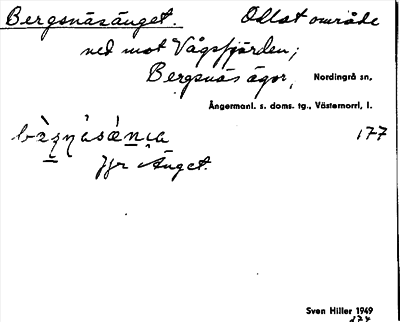 Bergsnäsänget. Odlat område
ned mot Vågsfjärden;
Bergsnäs ägor, Nordingrå sn,
Ångermanl. s. doms. tg., Västernorrl. l.
177
jfr Änget.
Sven Hiller 1949
177